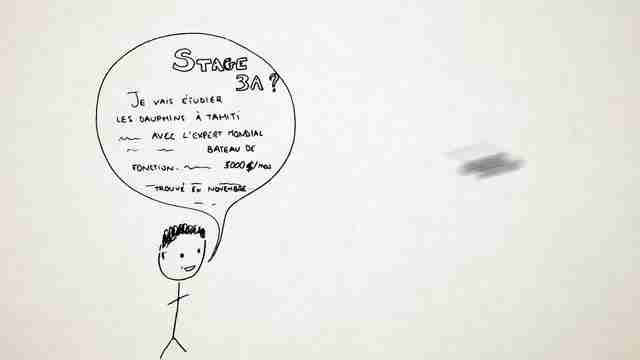 STAGE
3A ?
JE VAIS ÉTUDIER
LES DAUPHINS À TAHITI
AVEC L'EXPERT MONDIAL
BATEAU DE
FONCTION. 5000 $/mois
TROUVÉ EN NOVEMBRE